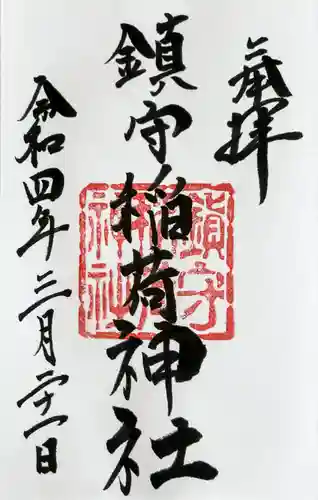 奉拝
鎮守稲荷神社
令和四年三月二十一日
鎮守
稲荷
神社